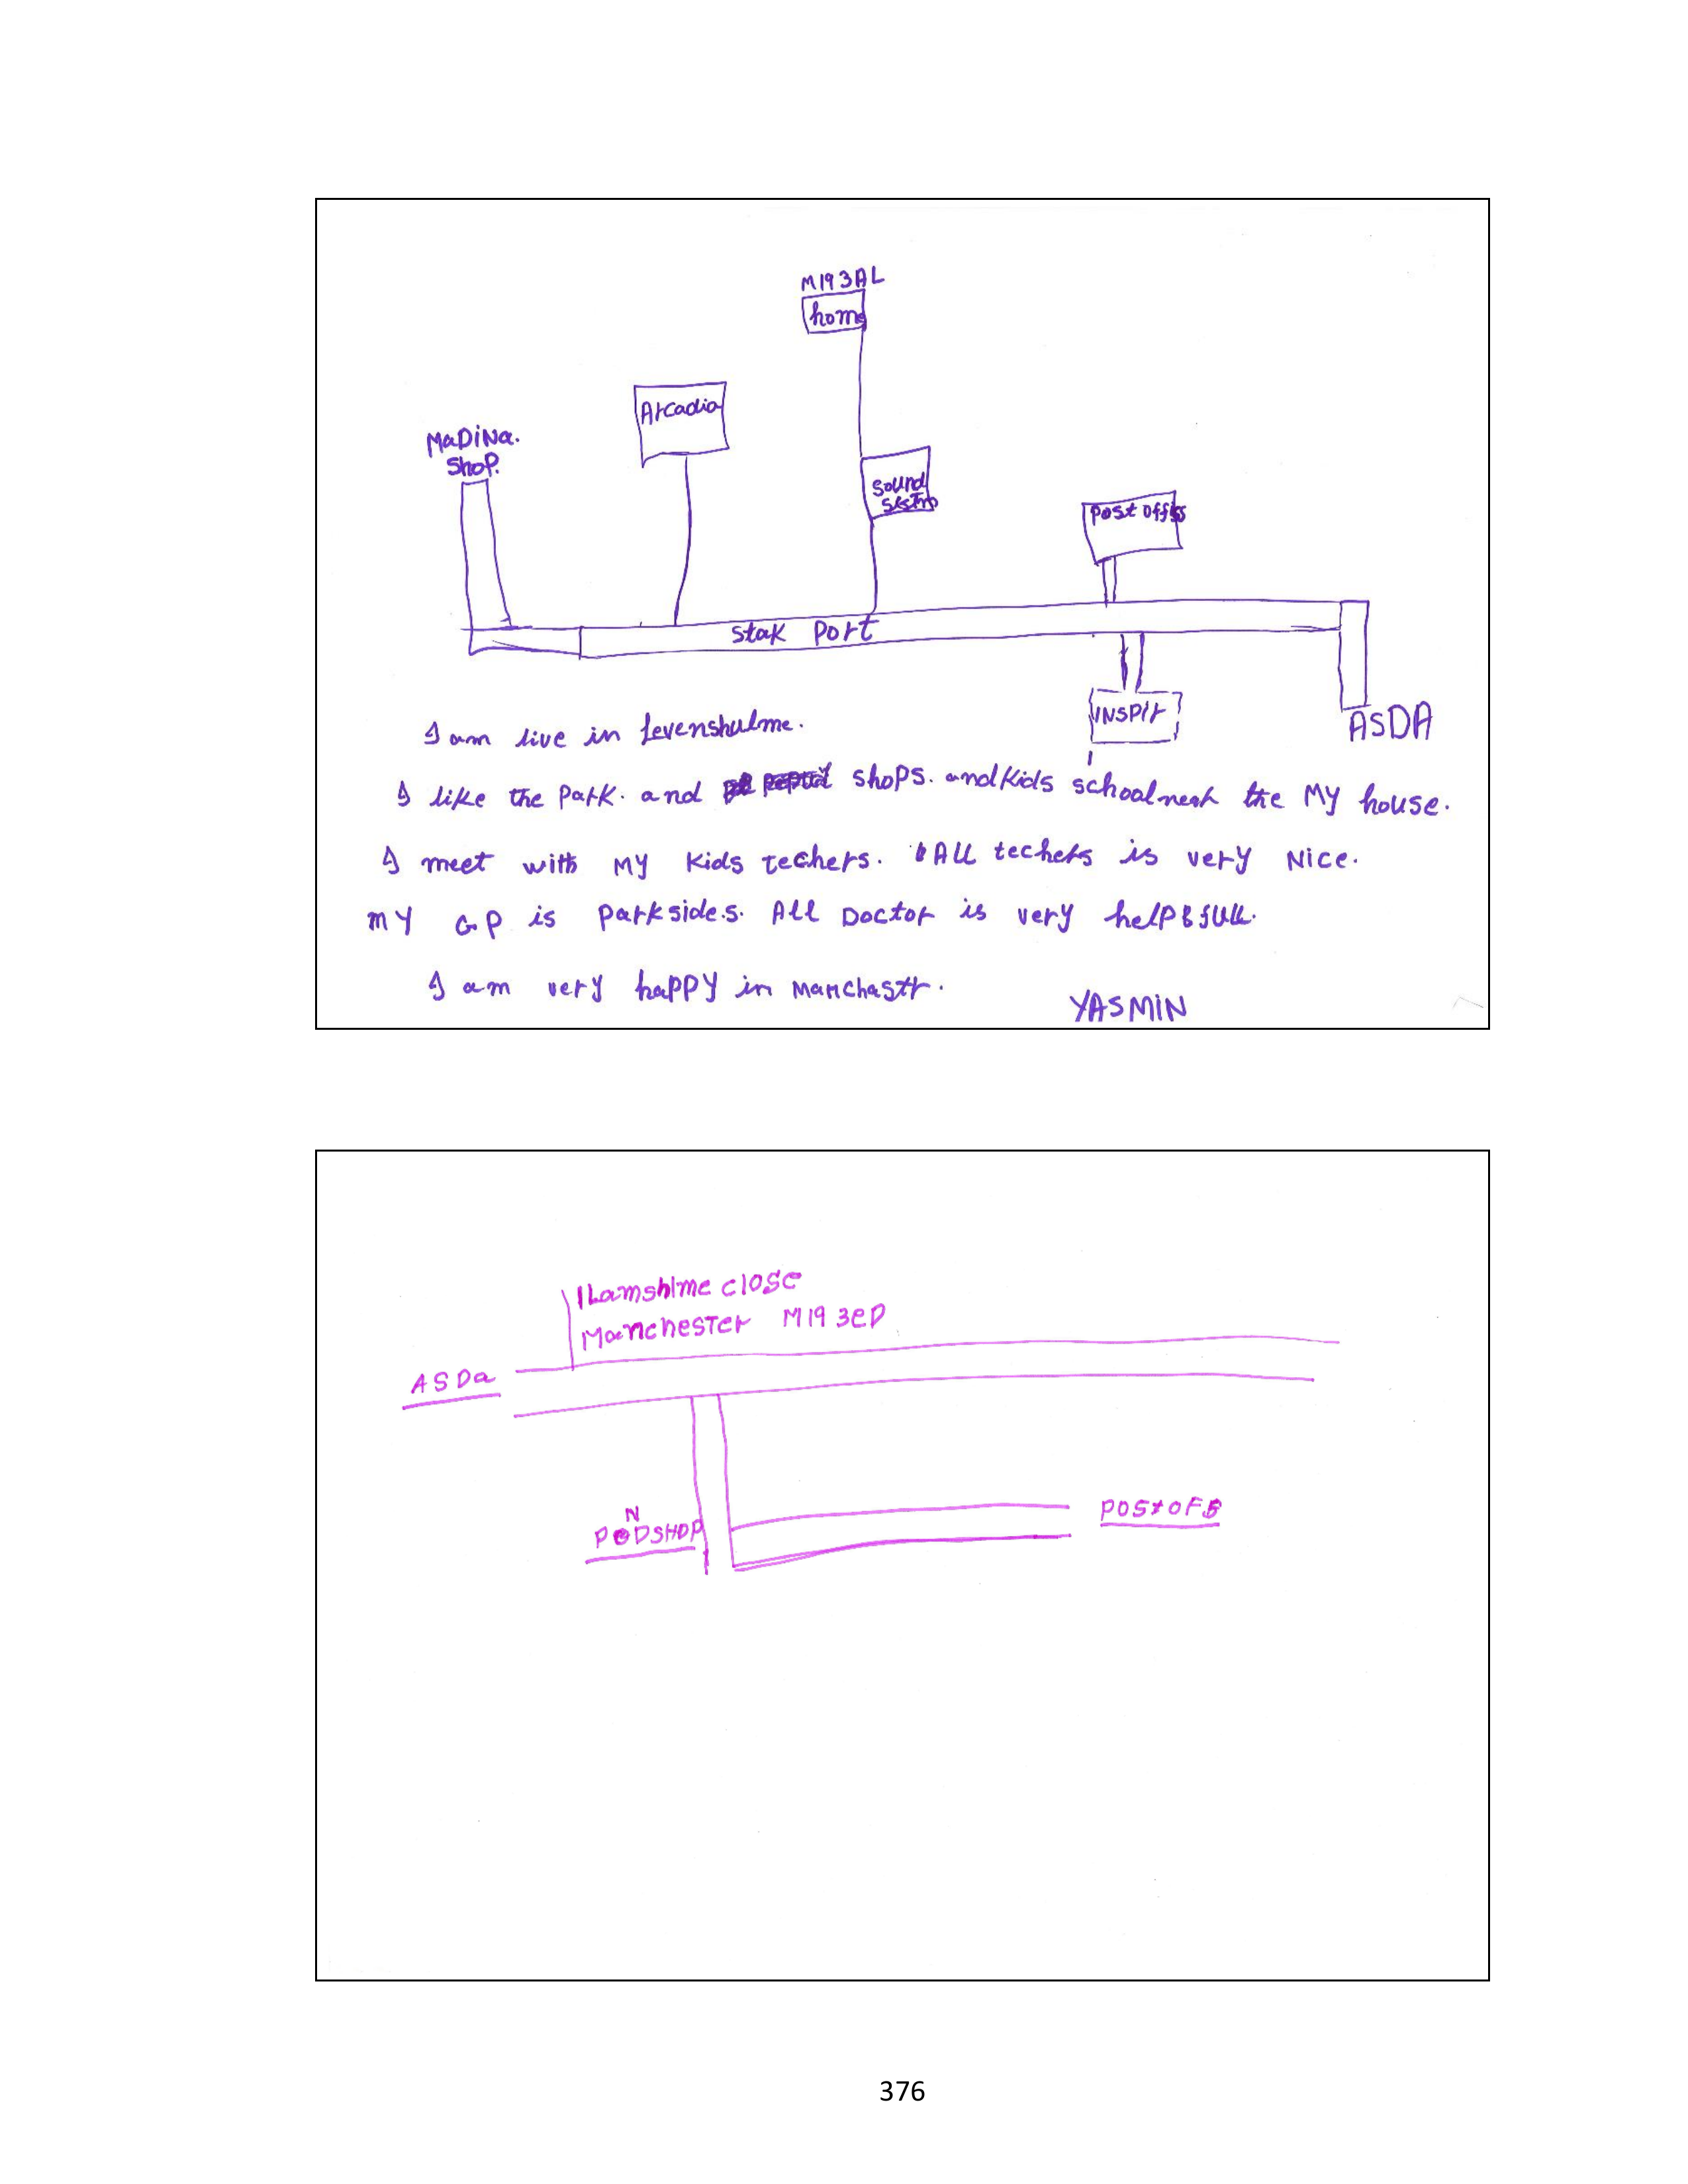 M193AL
home
Arcadia
MaDiNa.
Shop.
Sound
Post offis
Stak Port
INSPIr
ASDA
I am live in Levenshulme.
I like the Park. and shops. and Kids school near the My house.
I meet with My Kids techers. All techers is very Nice.
MY GP is Parkside.s. All Doctor is very
I am very happy in
YASMIN
Close
Manchester M19 3eD
ASDa
N
SHOP
376